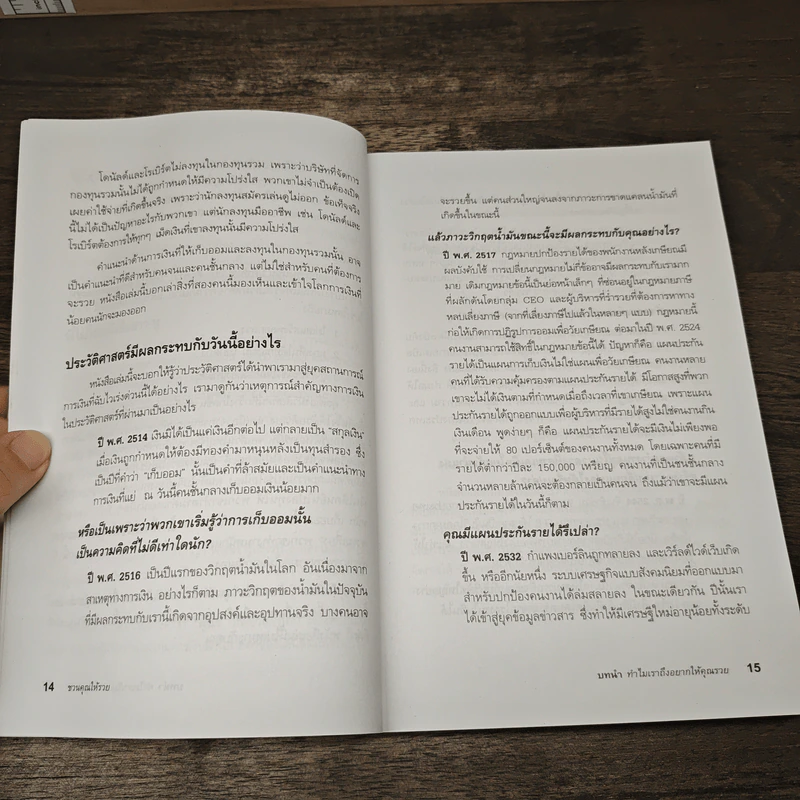 โดนัลด์และโรเบิร์ตไม่ลงทุนในกองทุนรวม เพราะว่าบริษัทที่จัดการ
กองทุนรวมนั้นไม่ได้ถูกกำหนดให้มีความโปร่งใส พวกเขาไม่จำเป็นต้องเปิด
เผยค่าใช้จ่ายที่เกิดขึ้นจริง เพราะว่านักลงทุนสมัครเล่นดูไม่ออก ข้อเท็จจริง
นี้ไม่ได้เป็นปัญหาอะไรกับพวกเขา แต่นักลงทุนมืออาชีพ เช่น โดนัลด์และ
โรเบิร์ตต้องการให้ทุกๆ เม็ดเงินที่เขาลงทุนนั้นมีความโปร่งใส
คำแนะนำด้านการเงินที่ให้เก็บออมและลงทุนในกองทุนรวมนั้น อาจ
เป็นคำแนะนำที่ดีสำหรับคนจนและคนชั้นกลาง แต่ไม่ใช่สำหรับคนที่ต้องการ
จะรวย หนังสือเล่มนี้บอกเล่าสิ่งที่สองคนนี้มองเห็นและเข้าใจโลกการเงินที่
น้อยคนนักจะมองออก
ประวัติศาสตร์มีผลกระทบกับวันนี้อย่างไร
หนังสือเล่มนี้จะบอกให้รู้ว่าประวัติศาสตร์ได้นำพาเรามาสู่ยุคสถานการณ์
การเงินที่ฉับไวเร่งด่วนนี้ได้อย่างไร เรามาดูกันว่าเหตุการณ์สำคัญทางการเงิน
ในประวัติศาสตร์ที่ผ่านมาเป็นอย่างไร
ปี พ.ศ. 2514 เงินมิได้เป็นแค่เงินอีกต่อไป แต่กลายเป็น "สกุลเงิน"
เมื่อเงินถูกกำหนดให้ต้องมีทองคำมาหนุนหลังเป็นทุนสำรอง ซึ่ง
เป็นปีที่คำว่า "เก็บออม" นั้นเป็นคำที่ล้าสมัยและเป็นคำแนะนำทาง
การเงินที่แย่ ณ วันนี้คนชั้นกลางเก็บออมเงินน้อยมาก
หรือเป็นเพราะว่าพวกเขาเริ่มรู้ว่าการเก็บออมนั้น
เป็นความคิดที่ไม่ดีเท่าใดนัก?
ปี พ.ศ. 2516 เป็นปีแรกของวิกฤตน้ำมันในโลก อันเนื่องมาจาก
สาเหตุทางการเงิน อย่างไรก็ตาม ภาวะวิกฤตของน้ำมันในปัจจุบัน
ที่มีผลกระทบกับเรานี้เกิดจากอุปสงค์และอุปทานจริง บางคนอาจ
14 ชวนคุณให้รวย
จะรวยขึ้น แต่คนส่วนใหญ่จนลงจากภาวะการขาดแคลนน้ำมันที่
เกิดขึ้นในขณะนี้
แล้วภาวะวิกฤตน้ำมันขณะนี้จะมีผลกระทบกับคุณอย่างไร?
ปี พ.ศ. 2517 กฎหมายปกป้องรายได้ของพนักงานหลังเกษียณมี
ผลบังคับใช้ การเปลี่ยนกฎหมายไม่กี่ข้ออาจมีผลกระทบกับเรามาก
มาย เดิมกฎหมายข้อนี้เป็นย่อหน้าเล็กๆ ที่ซ่อนอยู่ในกฎหมายภาษี
ที่ผลักดันโดยกลุ่ม CEO และผู้บริหารที่ร่ำรวยที่ต้องการหาทาง
หลบเลี่ยงภาษี (จากที่เลี่ยงภาษีไปแล้วในหลายๆ แบบ) กฎหมายนี้
ก่อให้เกิดการปฏิรูปการออมเพื่อวัยเกษียณ ต่อมาในปี พ.ศ. 2524
คนงานสามารถใช้สิทธิ์ในกฎหมายข้อนี้ได้ ปัญหาก็คือ แผนประกัน
รายได้เป็นแผนการเก็บเงินไม่ใช่แผนเพื่อวัยเกษียณ คนงานหลาย
คนที่ได้รับความคุ้มครองตามแผนประกันรายได้ มีโอกาสสูงที่พวก
เขาจะไม่ได้เงินตามที่กำหนดเมื่อถึงเวลาที่เขาเกษียณ เพราะแผน
ประกันรายได้ถูกออกแบบเพื่อผู้บริหารที่มีรายได้สูงไม่ใช่คนงานกิน
เงินเดือน พูดง่ายๆ ก็คือ แผนประกันรายได้จะมีเงินไม่เพียงพอ
ที่จะจ่ายให้ 80 เปอร์เซ็นต์ของคนงานทั้งหมด โดยเฉพาะคนที่มี
รายได้ต่ำกว่าปีละ 150,000 เหรียญ คนงานที่เป็นชนชั้นกลาง
จำนวนหลายล้านคนจะต้องกลายเป็นคนจน ถึงแม้ว่าเขาจะมีแผน
ประกันรายได้ในวันนี้ก็ตาม
คุณมีแผนประกันรายได้รึเปล่า?
ปี พ.ศ. 2532 กำแพงเบอร์ลินถูกทลายลง และเวิร์ลด์ไวด์เว็บเกิด
ขึ้น หรืออีกนัยหนึ่ง ระบบเศรษฐกิจแบบสังคมนิยมที่ออกแบบมา
สำหรับปกป้องคนงานได้ล่มสลายลง ในขณะเดียวกัน ปีนั้นเรา
ได้เข้าสู่ยุคข้อมูลข่าวสาร ซึ่งทำให้มีเศรษฐีใหม่อายุน้อยทั้งระดับ
บทนำ ทำไมเราถึงอยากให้คุณรวย 15